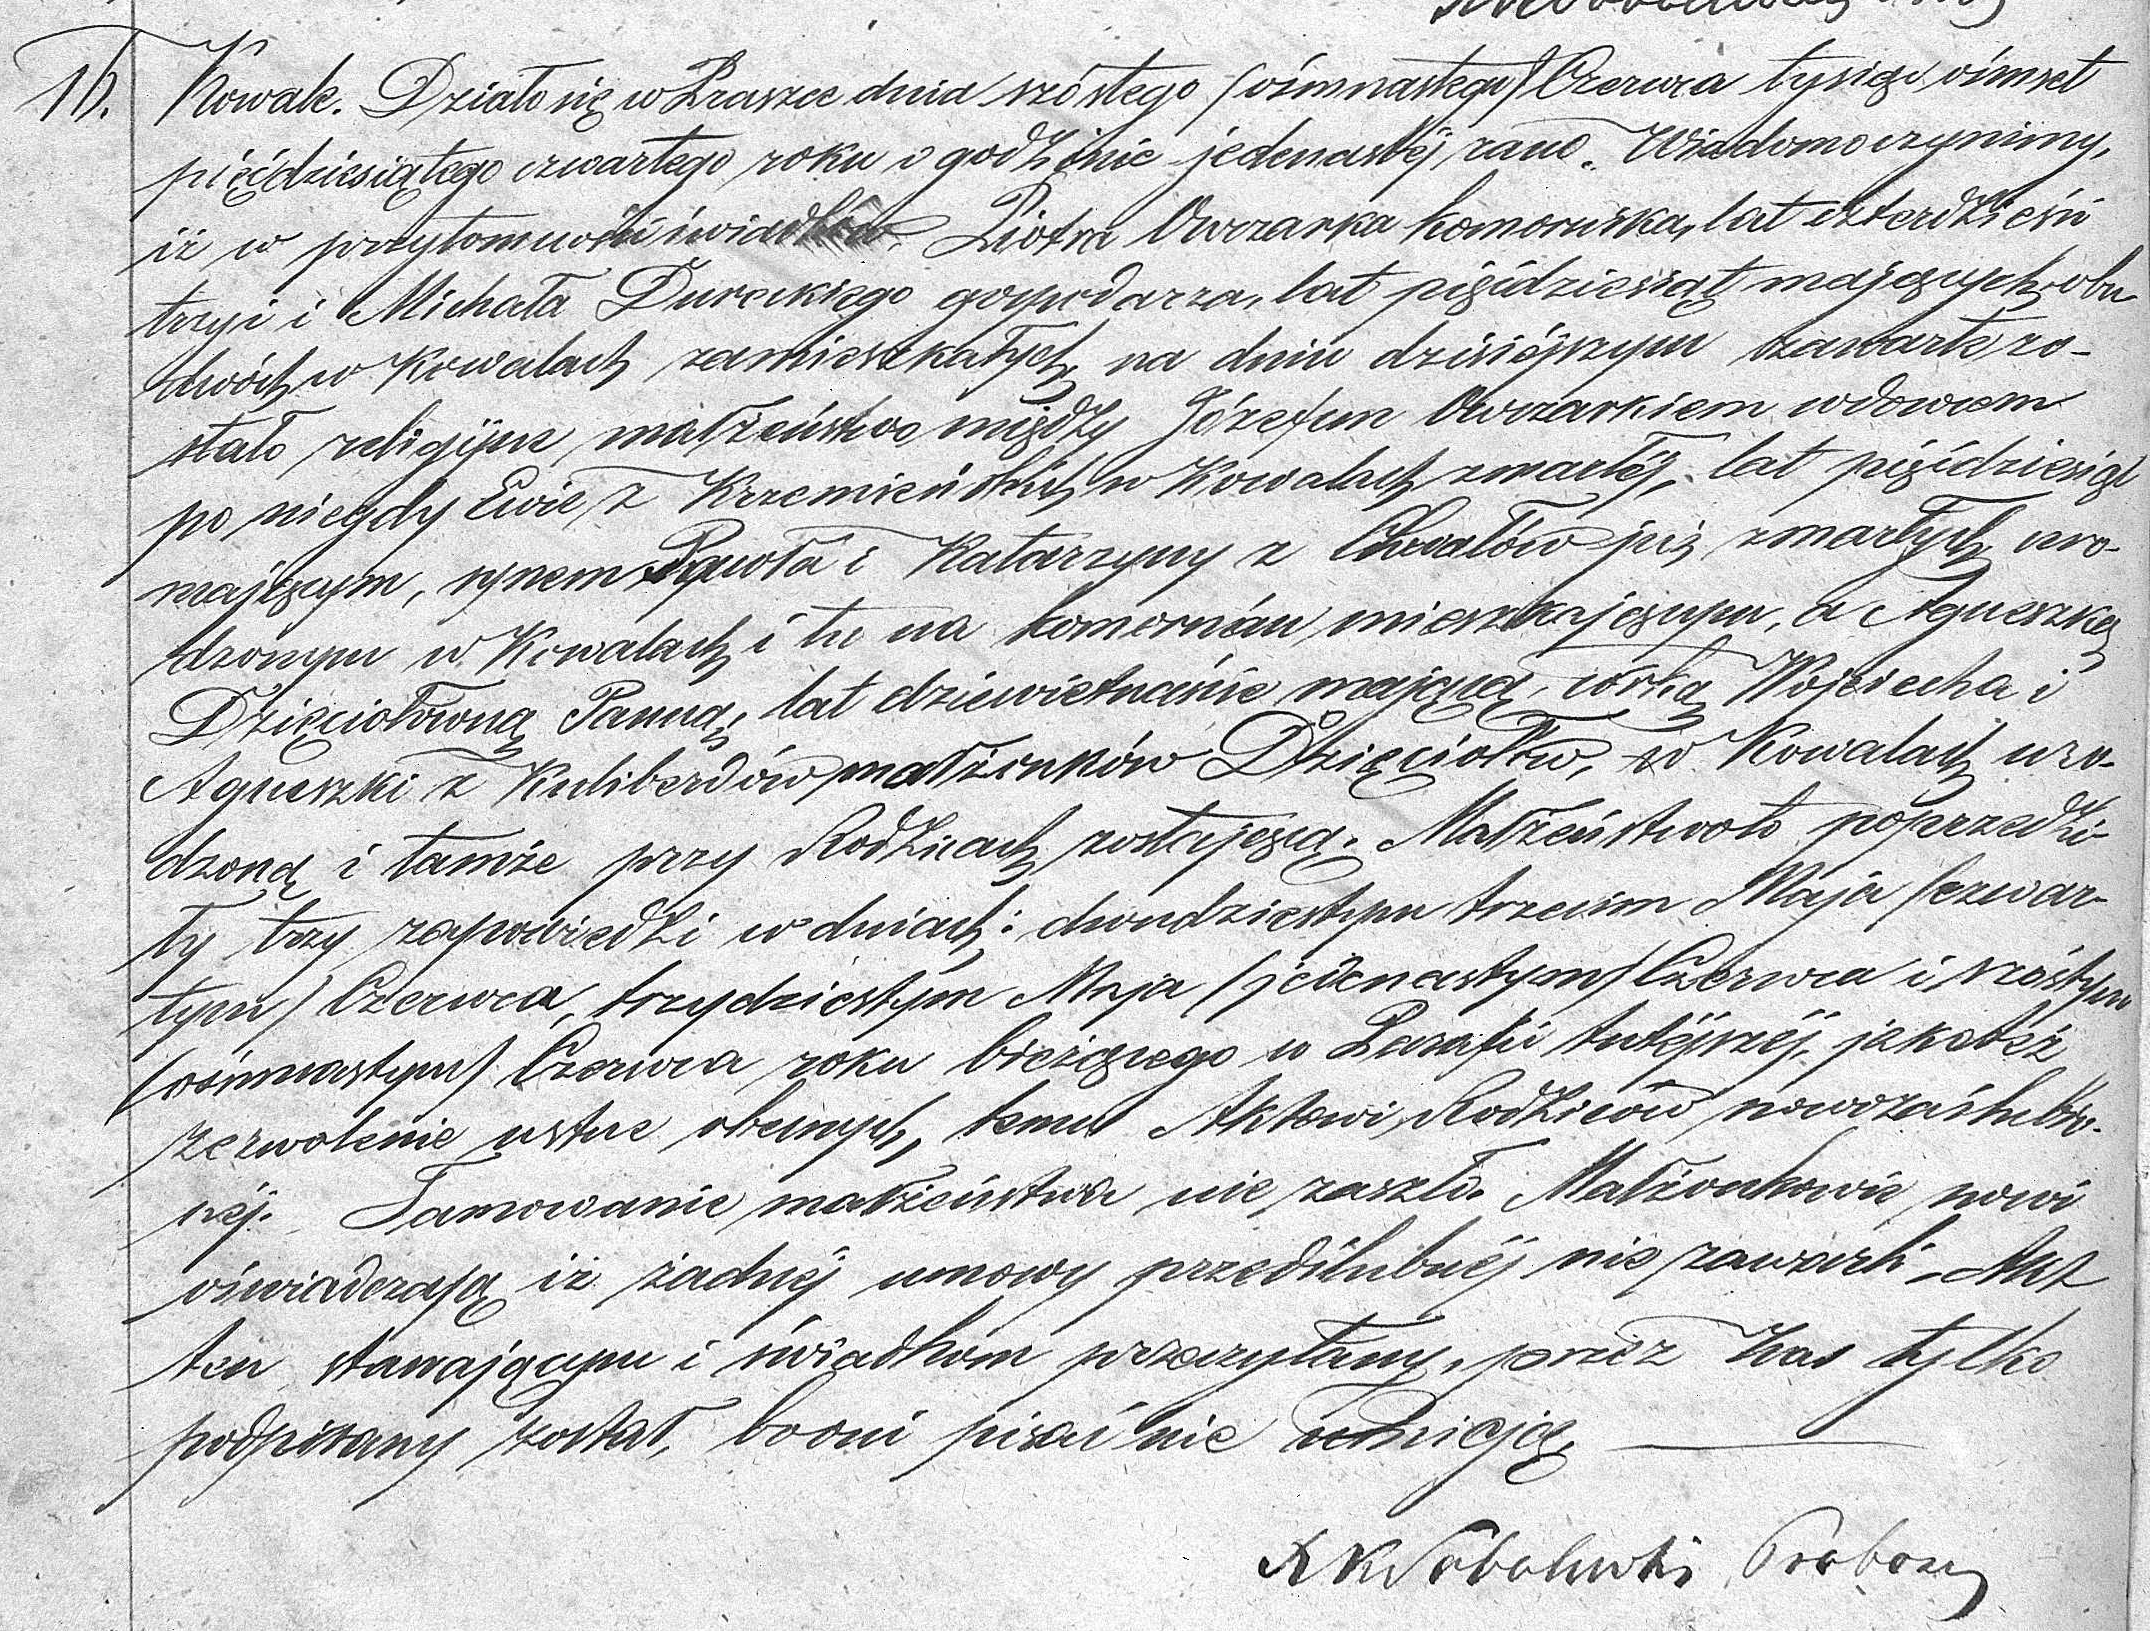 16.
Kowale. Działo się w Praszce dnia szóstego (ośmnastego) Czerwca tysiąc ośmset
pięćdziesiątego czwartego roku o godzinie jedenastéj rano. Wiadomo czynimy,
iż w przytomności świadków Piotra Owczarka komornika, lat czterdzieści
trzy i Michała Dureckiego gospodarza, lat pięćdziesiąt mających, obu
dwóch w Kowalach zamieszkałych, na dniu dzisiéjszym zawarte zo-
stało religijne małżeństwo między Józefem Owczarkiem wdowcem
po niegdy Ewie z Krzemieńskich w Kowalach zmarłéj, lat pięćdziesiąt
mającym, synem Pawła i Katarzyny z już zmarłych, uro-
dzonym w Kowalach i tu na komorném mieszkającym, a Agnieszką
Dzięciołowną Panną, lat dziewietnaście mającą, córką Wojciecha i
Agnieszki z Kuliberdów małżonków Dzięciołów, w Kowalach uro-
dzoną i tamże przy Rodzicach zostającą. Małżeństwo to poprzedzi-
ły trzy zapowiedzi w dniach: dwudziestym trzecim Maja (czwar-
tym) Czerwca, trzydziestym Maja (jedenastym) Czerwca i szóstym
(ośmnastym) Czerwca roku bieżącego w Parafii tutéjszéj, jakotéż
zezwolenie ustne obecnych, temu Aktowi Rodziców nowozaślubio-
néj. Tamowanie małżeństwa nie zaszło. Małżonkowie nowi
oświadczają iż żadnéj umowy przedślubnéj nie zawarli. Akt
ten stawającym i świadkom przeczytany, przez Nas tylko
podpisany został, bo oni pisać nie umieją.
X K Sobolewski Proboszcz